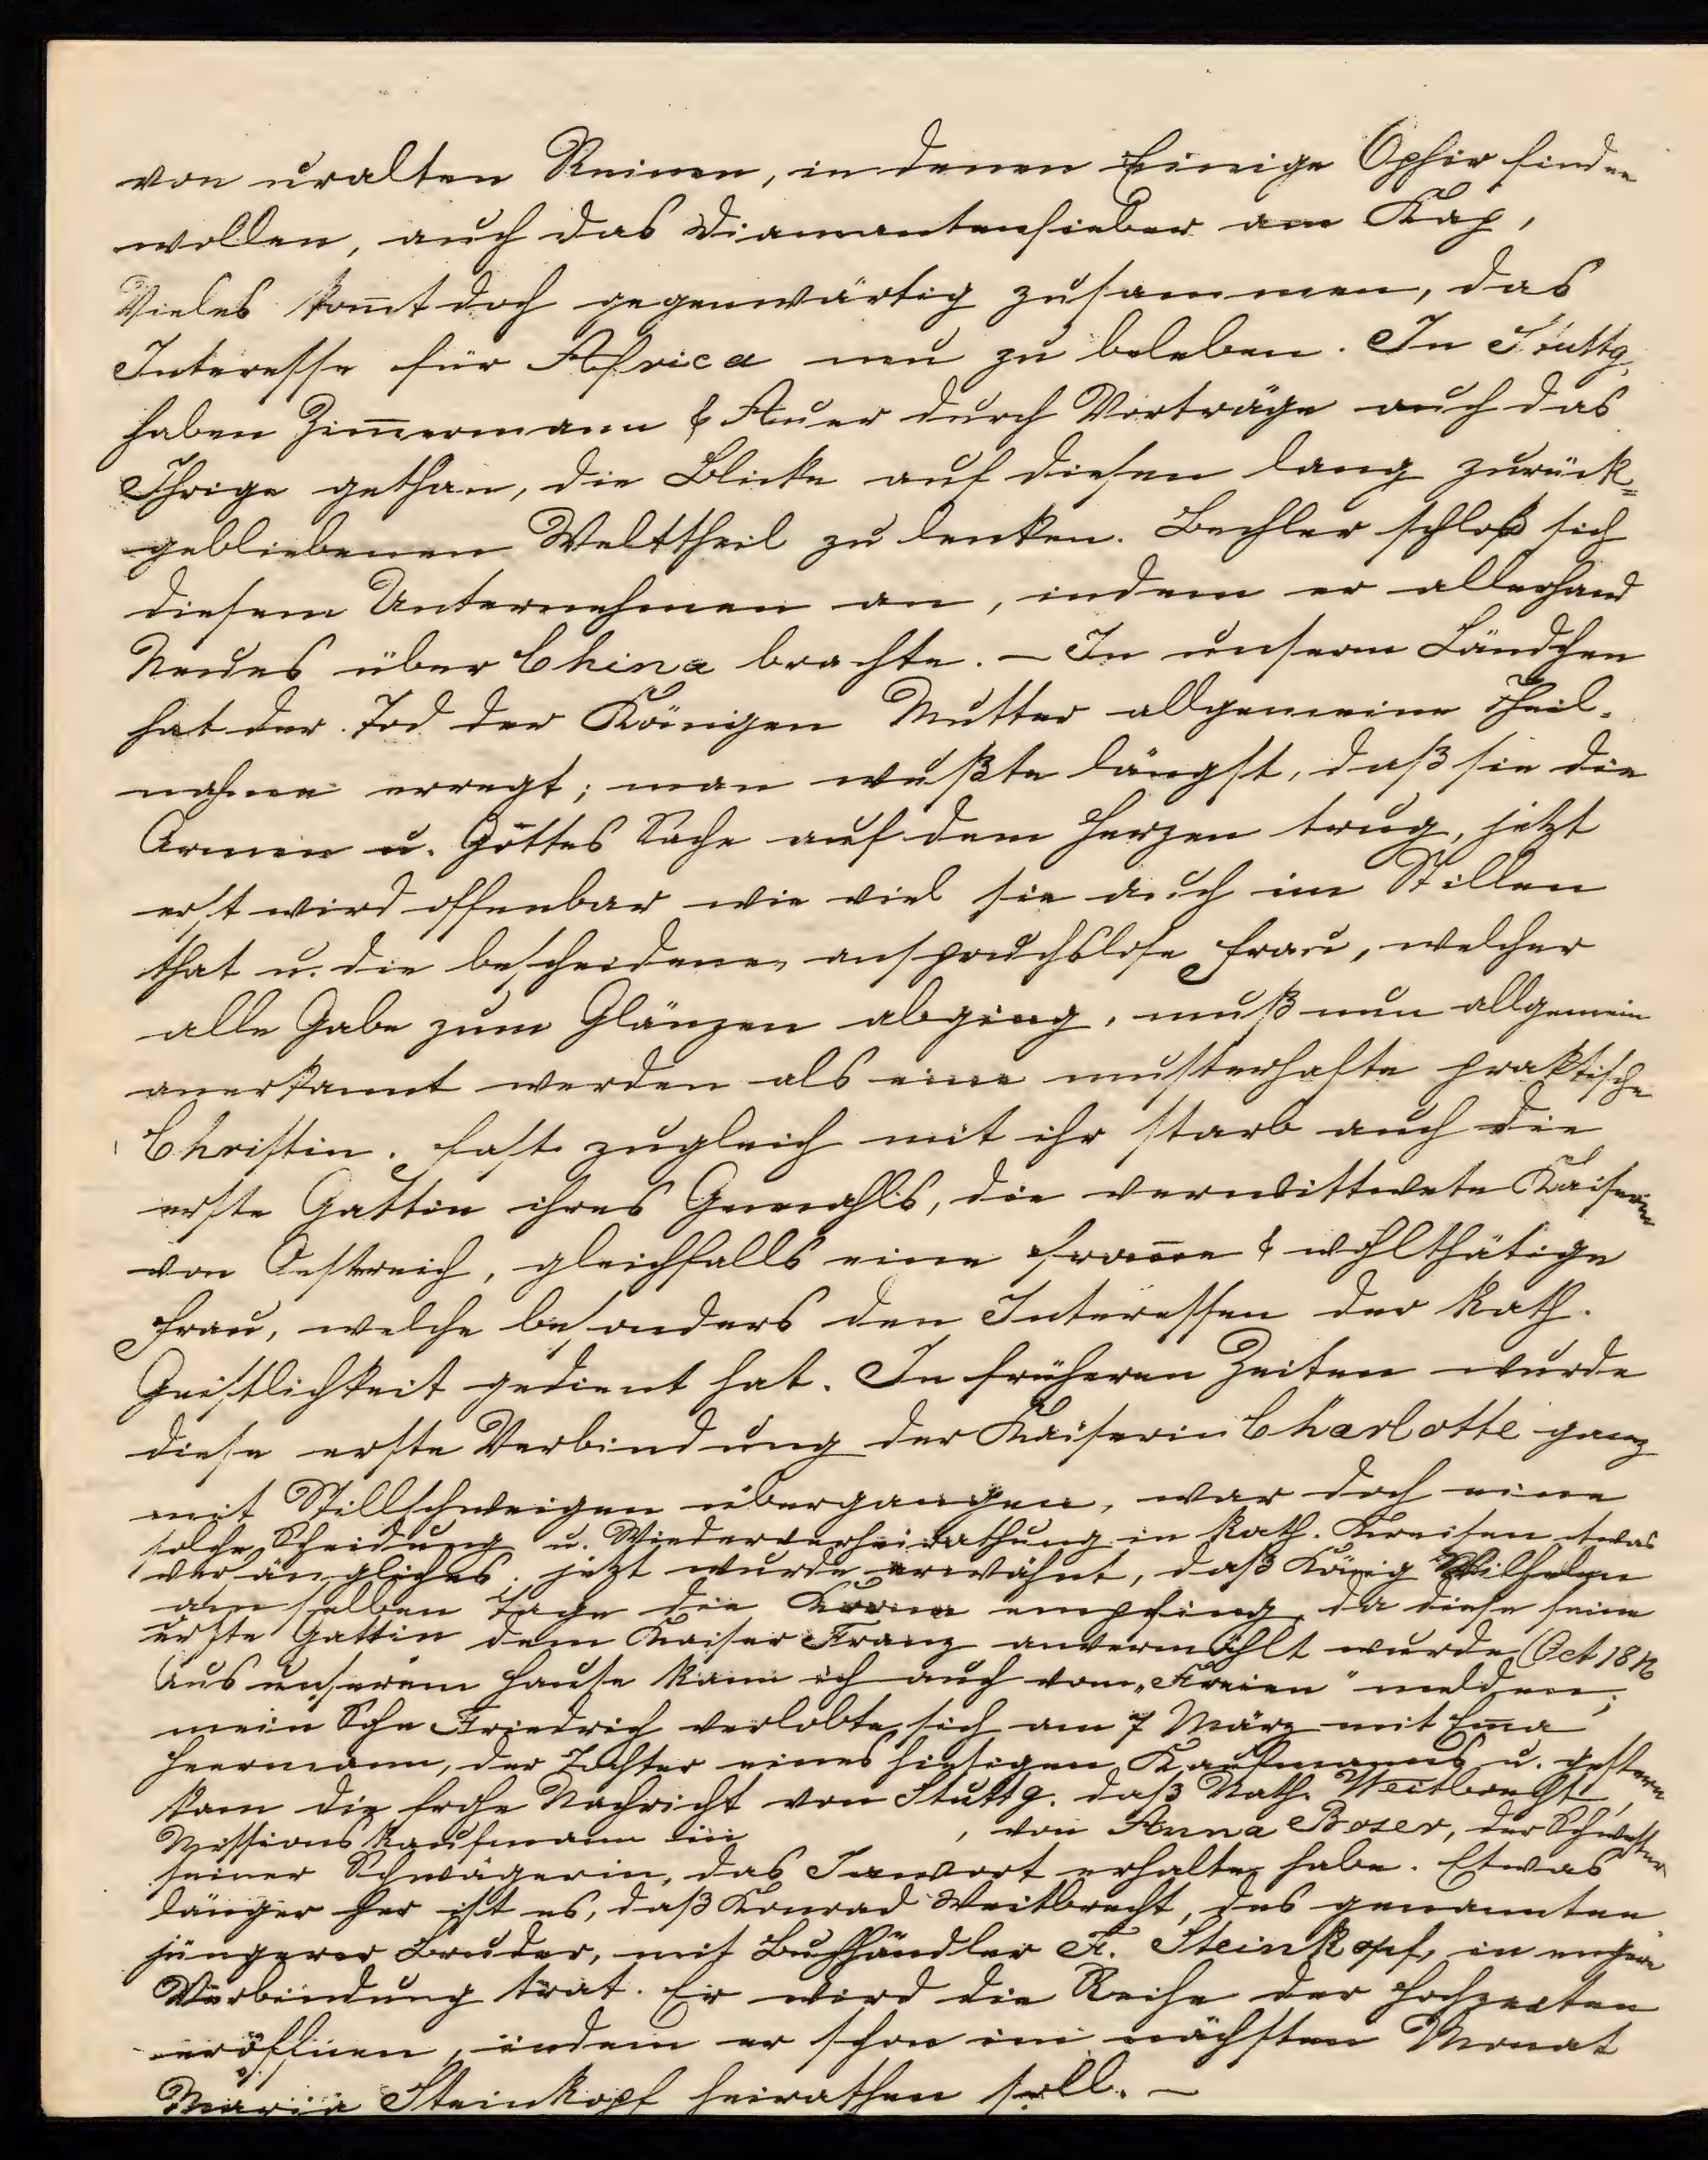 von uralten Ruinen, in denen Einige Ophir finden
wollen, auch das Diamantenfieber am Kap,
Vieles kom̄t doch gegenwärtig zusammen, das
Interesse für Africa neu zu beleben. In Stuttg.
haben Zim̄ermann & Auer durch Vorträge auch das
Ihrige gethan, die Blicke auf diesen lang zurück-
gebliebenen Welttheil zu lenken. Bechler schloß sich
diesem Unternehmen an, indem er allerhand
Neues über China brachte. – In unserm Ländchen
hat der Tod der Königin Mutter allgemeine Theil-
nahme erregt; man wußte längst, daß sie die
Armen u. Gottes Sache auf dem Herzen trug, jetzt
erst wird offenbar wie viel sie auch im Stillen
that u. die bescheidene, anspruchslose Frau, welcher
alle Gabe zum Glänzen abging, muß nun allgemein
anerkannt werden als eine musterhafte praktische
Christin. Fast zugleich mit ihr starb auch die
erste Gattin ihres Gemahls, die verwittwete Kaiserin
von Oestreich, gleichfalls eine from̄e & wohlthätige
Frau, welche besonders den Interessen der kath.
Geistlichkeit gedient hat. In früheren Zeiten wurde
diese erste Verbindung der Kaiserin Charlotte ganz
mit Stillschweigen übergangen, war doch eine
solche Scheidung u. Wiederverheirathung in kath. Kreisen etwas
verfängliches; jetzt wurde erwähnt, daß König Wilhelm
am selben Tage die Krone empfing, da diese seine
erste Gattin dem Kaiser Franz anvermählt wurde (Oct 1816
Aus unserem Hause kann ich auch vom „Freien" melden;
mein Sohn Friedrich verlobte sich am 7 März mit Em̄a
Heermann, der Tochter eines hiesigen Kaufmanns u. gestern
kam die frohe Nachricht von Stuttg. daß Nath. Weitbrecht,
Missionskaufmann in , von Anna Boser, der Schwester
seiner Schwägerin, das Jawort erhalten habe. Etwas
länger her ist es, daß Konrad Weitbrecht, des genannten
jüngerer Bruder, mit Buchhändler F. Steinkopf, in engere
Verbindung trat. Er wird die Reihe der Hochzeiten
eröffnen, indem er schon im nächsten Monat
Maria Steinkopf heirathen soll. –